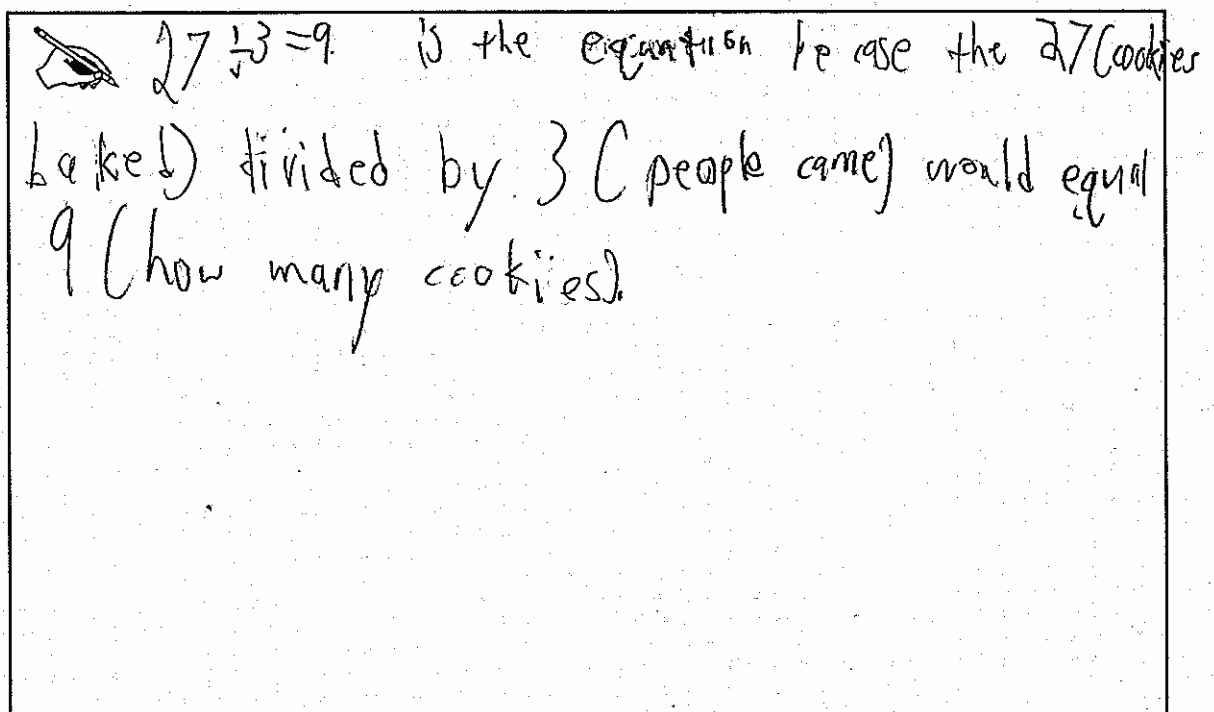 27 ÷ 3 = 9. is the equantion becase the 27 (cookies
baked) divided by 3 (people came) would equal
9 (how many cookies).